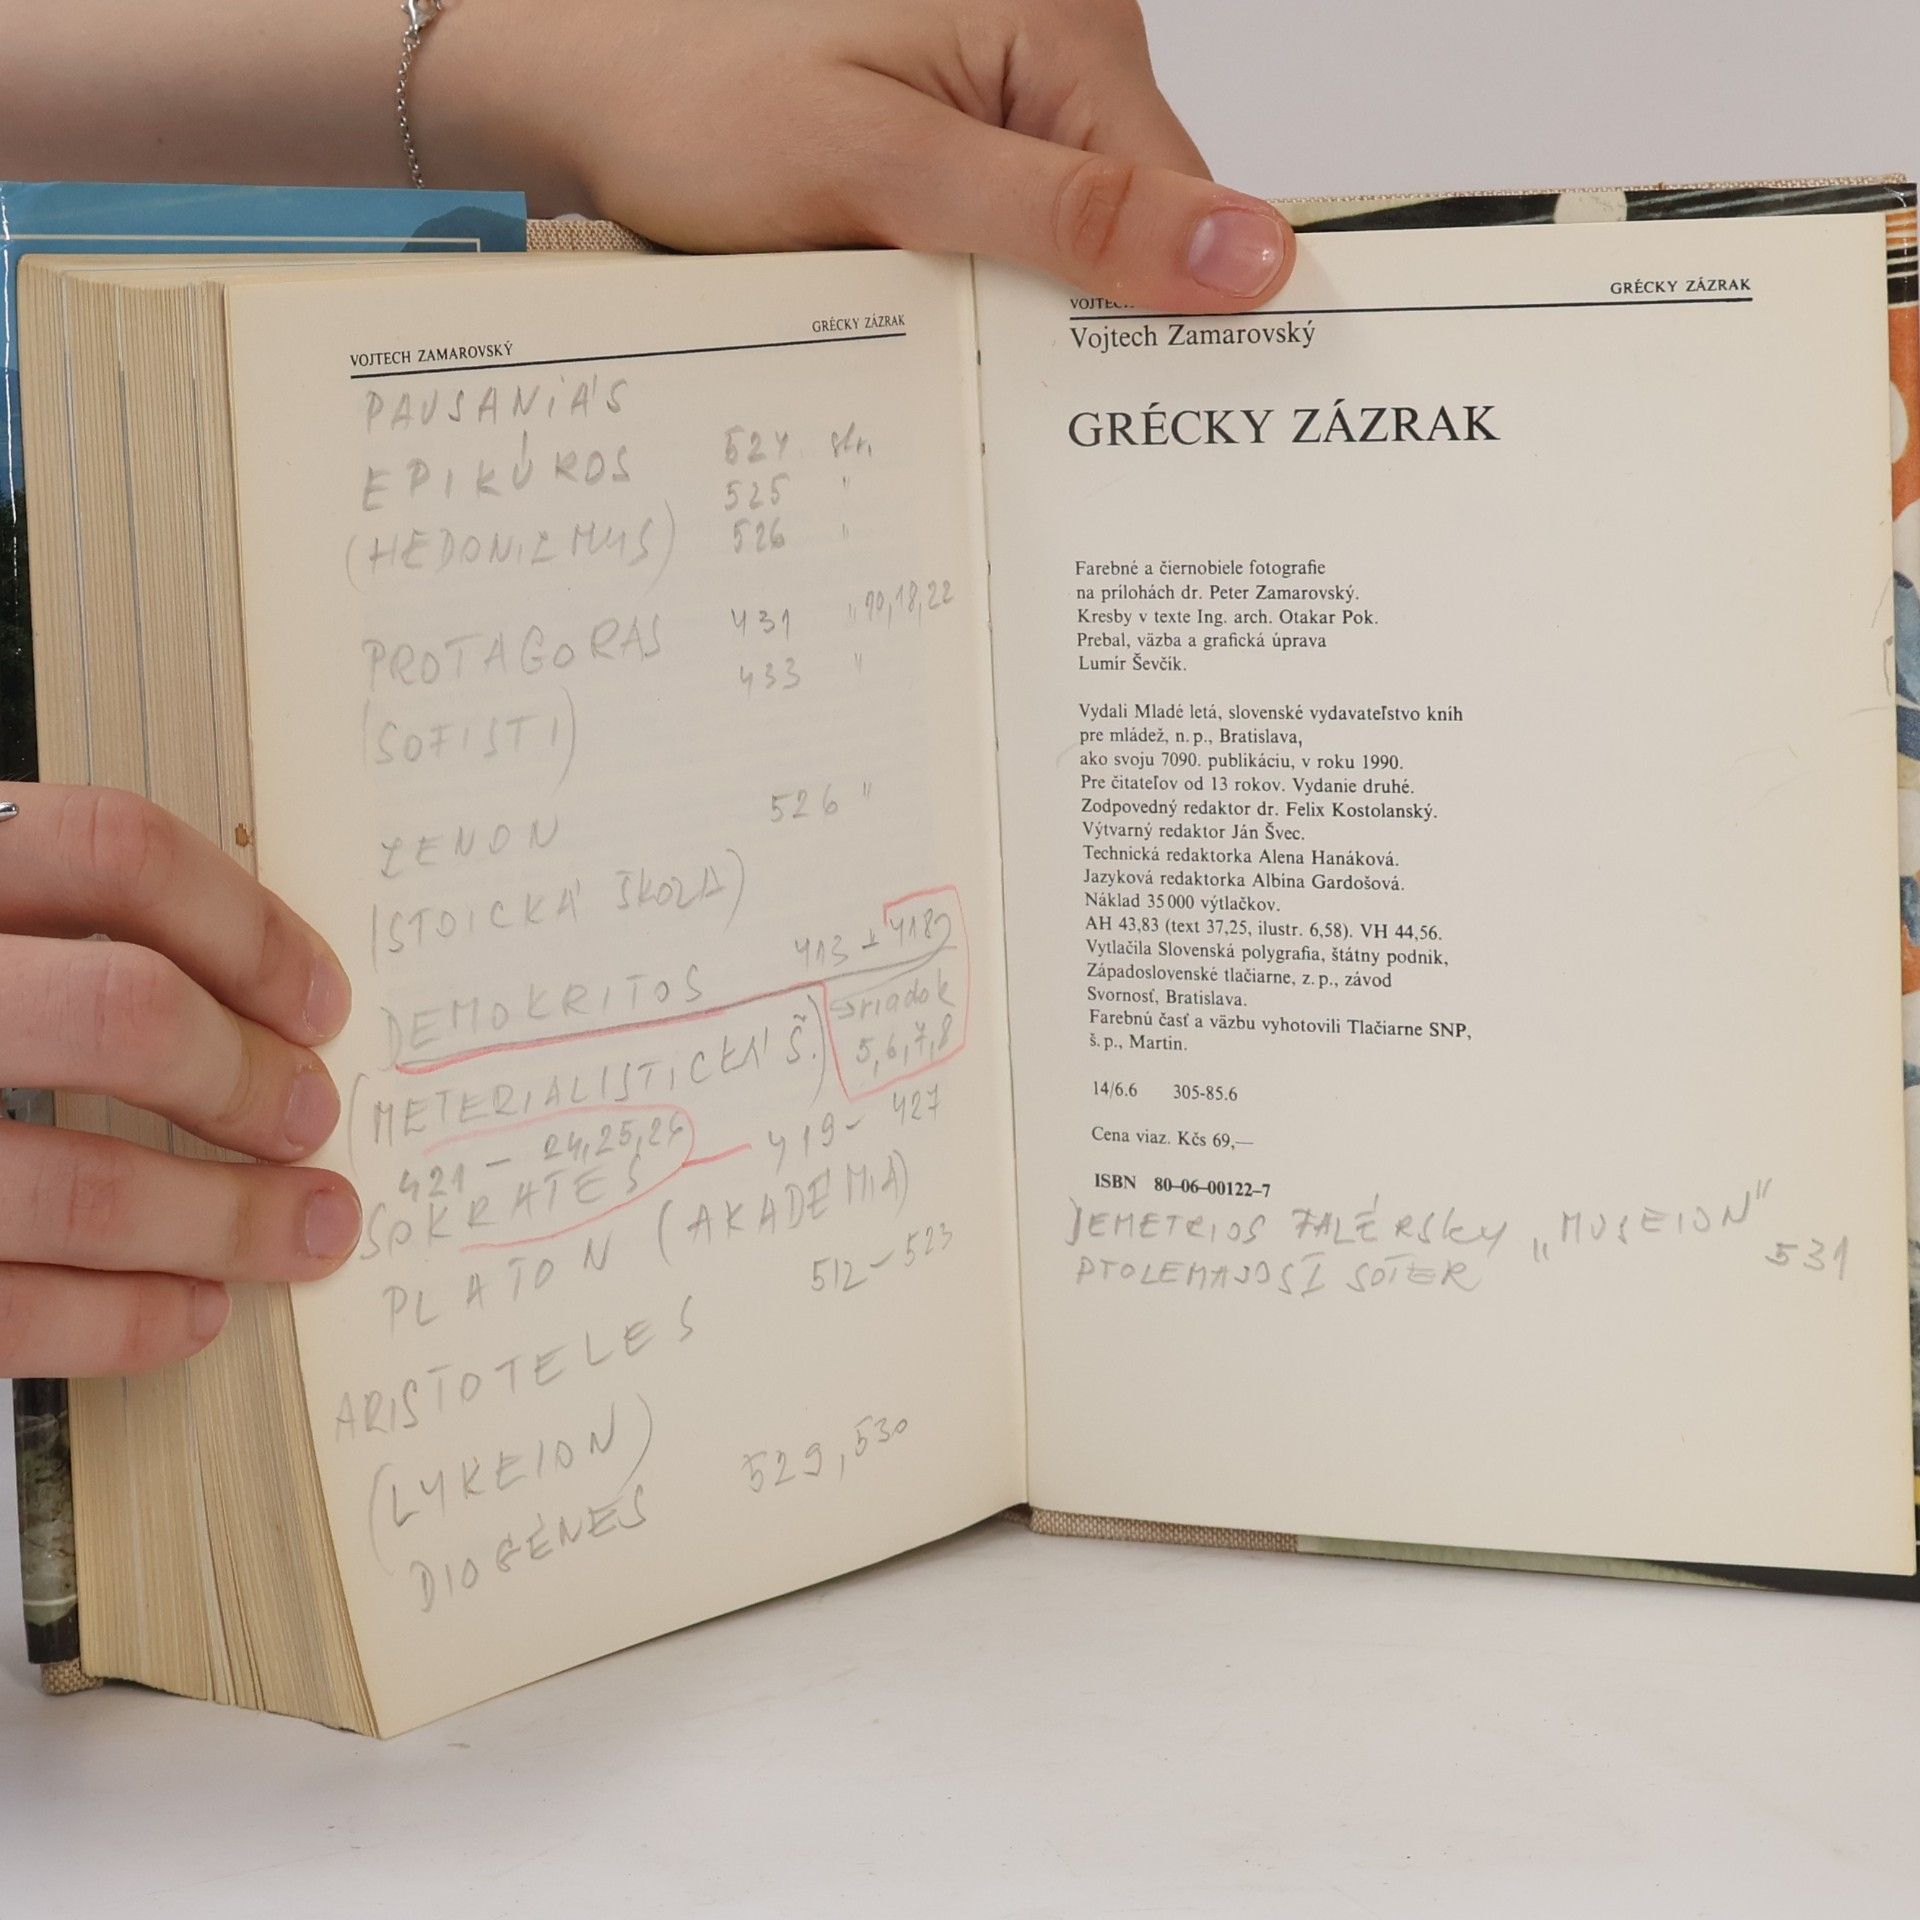 VOJTECH ZAMAROVSKÝ GRÉCKY ZÁZRAK
PAUSANIÁS
EPIKÚROS 524 str.
525 "
(HEDONIZMUS) 526 "
PROTAGORAS 431 " 10,18,22
433 "
(SOFISTI)
ZENON 526 "
(STOICKÁ ŠKOLA)
DEMOKRITOS 413 + 418
(METERIALISTICKÁ Š.) riadok
5,6,7,8
421 – 24,25,26
SOKRATES – 419 – 427
PLATON (AKADÉMIA)
512 – 523
ARISTOTELES
(LYKEION)
DIOGÉNES 529, 530
GRÉCKY ZÁZRAK
Vojtech Zamarovský
GRÉCKY ZÁZRAK
Farebné a čiernobiele fotografie
na prílohách dr. Peter Zamarovský.
Kresby v texte Ing. arch. Otakar Pok.
Prebal, väzba a grafická úprava
Lumír Ševčík.
Vydali Mladé letá, slovenské vydavateľstvo kníh
pre mládež, n. p., Bratislava,
ako svoju 7090. publikáciu, v roku 1990.
Pre čitateľov od 13 rokov. Vydanie druhé.
Zodpovedný redaktor dr. Felix Kostolanský.
Výtvarný redaktor Ján Švec.
Technická redaktorka Alena Hanáková.
Jazyková redaktorka Albína Gardošová.
Náklad 35 000 výtlačkov.
AH 43,83 (text 37,25, ilustr. 6,58). VH 44,56.
Vytlačila Slovenská polygrafia, štátny podnik,
Západoslovenské tlačiarne, z. p., závod
Svornosť, Bratislava.
Farebnú časť a väzbu vyhotovili Tlačiarne SNP,
š. p., Martin.
14/6.6 305-85.6
Cena viaz. Kčs 69,—
ISBN 80–06–00122–7
DEMETRIOS FALÉRSKY „MUSEION"
PTOLEMAJOS I SOTER 531